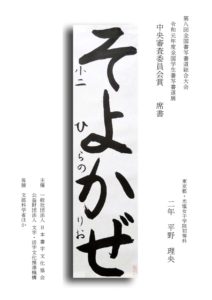 第八回全国書写書道総合大会
令和元年度全国学生書写書道展
中央審査委員会賞 席書
東京都・光塩女子学院初等科
二年 平野 理央
そよかぜ
小二 ひらの りお
主催 一般社団法人 日本書字文化協会
公益財団法人 文字・活字文化推進機構
後援 文部科学省ほか